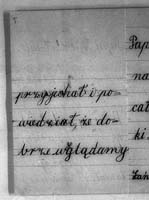 przyjechał i po-
wiedział, że do-
brze wyglądamy
Pap
na
cat
ki